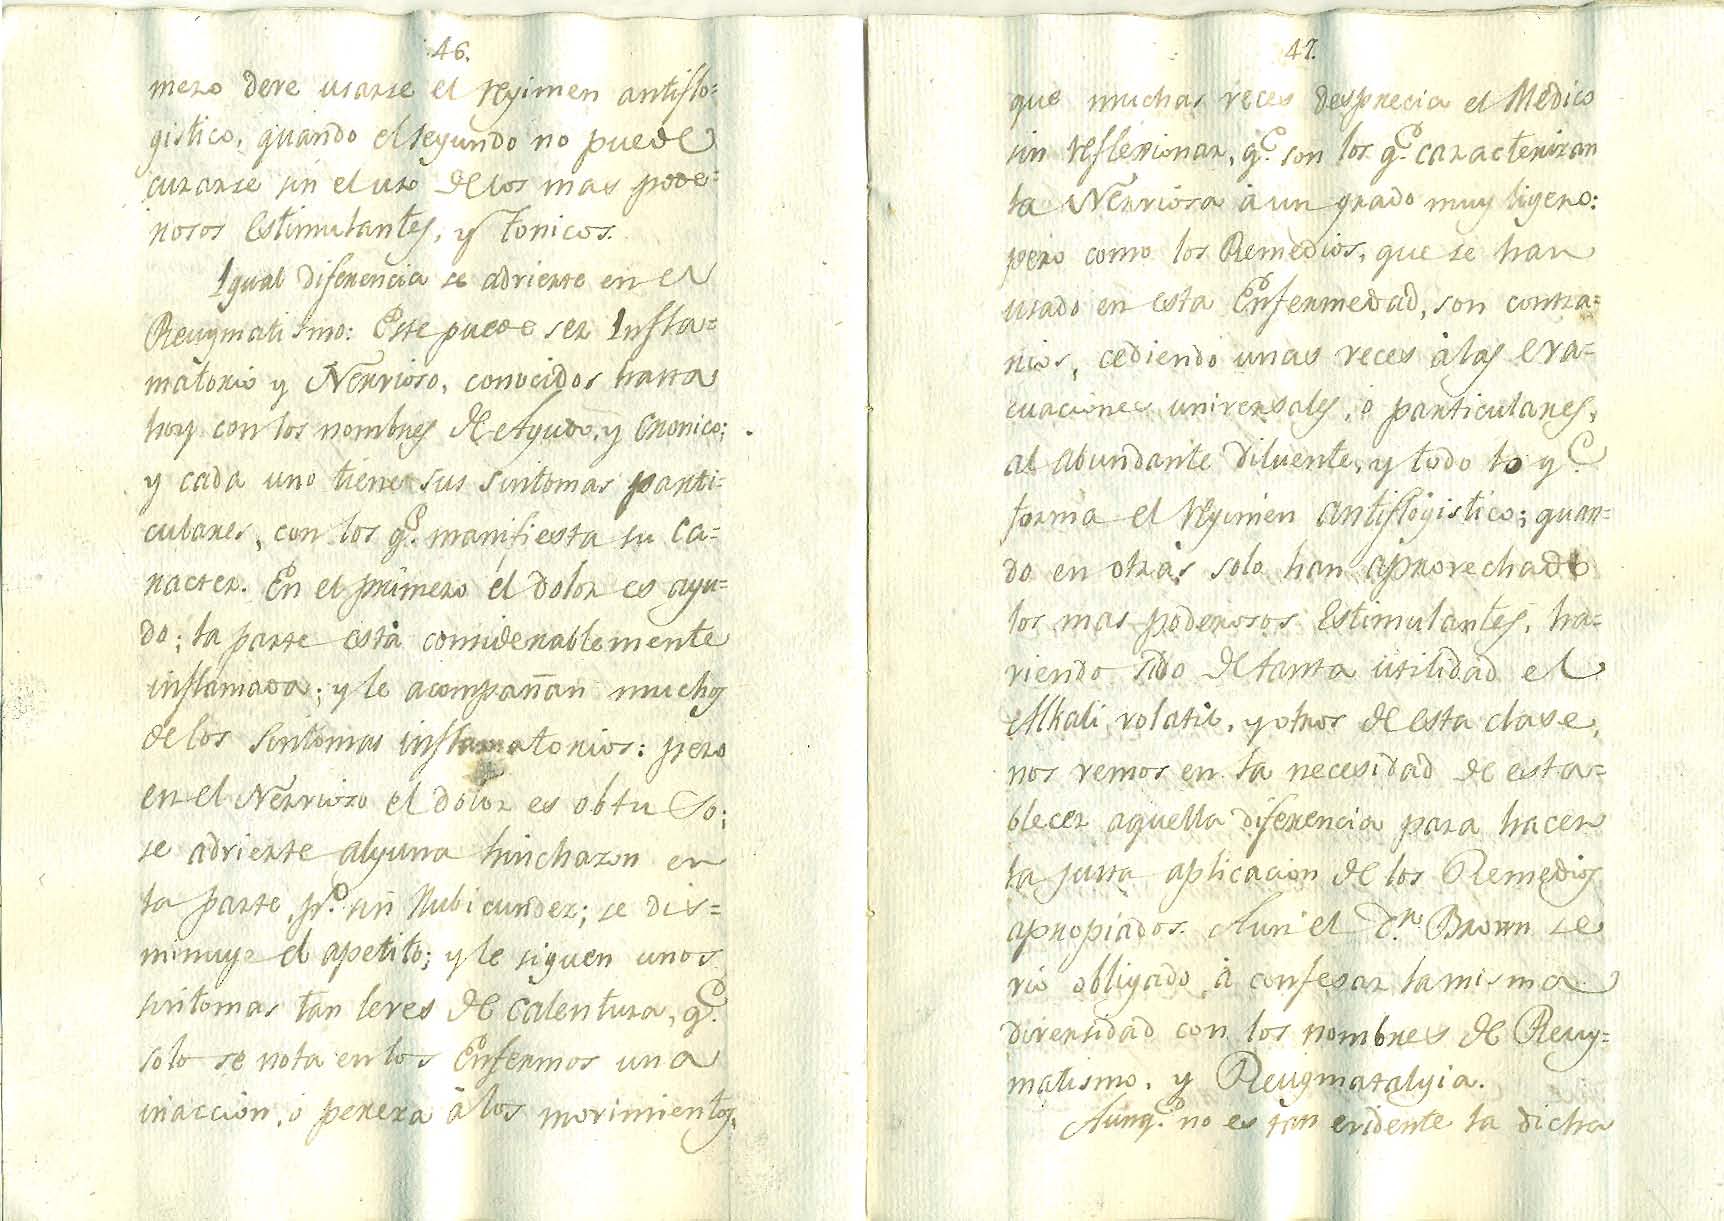 46.
mero deve usarse el regimen antiflo=
gistico, quando el segundo no puede
curarse sin el uso de los mas pode=
rosos Estimulantes, y tonicos.
Igual diferencia se advierte en el
Reugmatismo: Este puede ser Infla=
matorio y Nervioso, conocidos hasta
hoy con los nombres de Agudo, y Cronico;
y cada uno tiene sus sintomas parti=
culares, con los q.e manifiesta su ca=
racter. En el primero el dolor es agu=
do; la parte está considerablemente
inflamada; y le acompañan muchos
de los sintomas inflamatorios: pero
en el Nervioso el dolor es obtuso;
se advierte alguna hinchazon en
la parte, p.o sin Rubicundez; se dis=
minuye el apetito; y le siguen unos
sintomas tan leves de Calentura, q.e
solo se nota en los Enfermos una
inaccion, o pereza á los movimientos,
47.
que muchas veces desprecia el Medico
sin reflexionar, q.e son los q.e caracterizan
la Nerviosa á un grado muy ligero:
pero como los Remedios, que se han
usado en esta Enfermedad, son contra=
rios, cediendo unas veces á las eva=
cuaciones universales, o particulares,
al abundante diluente, y todo lo q.e
forma el regimen antiflogistico; quan=
do en otras solo han aprovechado
los mas poderosos Estimulantes, ha=
viendo sido de tanta utilidad el
Alkali volatil, y otros de esta clase,
nos vemos en la necesidad de esta=
blecer aquella diferencia para hacer
la justa aplicacion de los Remedios
apropiados. Aun el D.n Brown se
vio obligado á confesar la misma
diversidad con los nombres de Reug=
matismo, y Reugmatalgia.
Aunq.e no es tan evidente la dicha